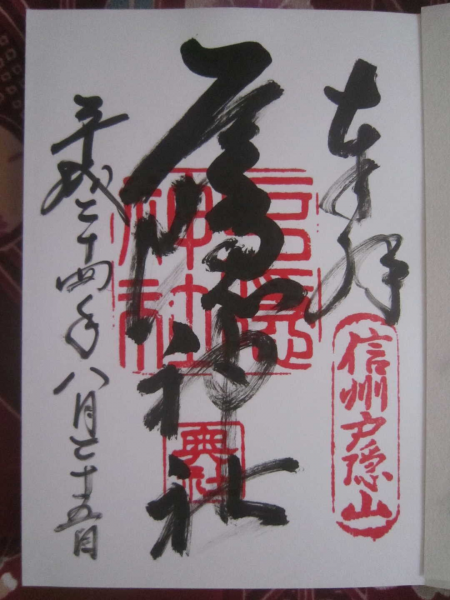 奉拝
信州戸隠山
戸隠神社
戸隠神社
奥社
平成二十四年八月二十五日